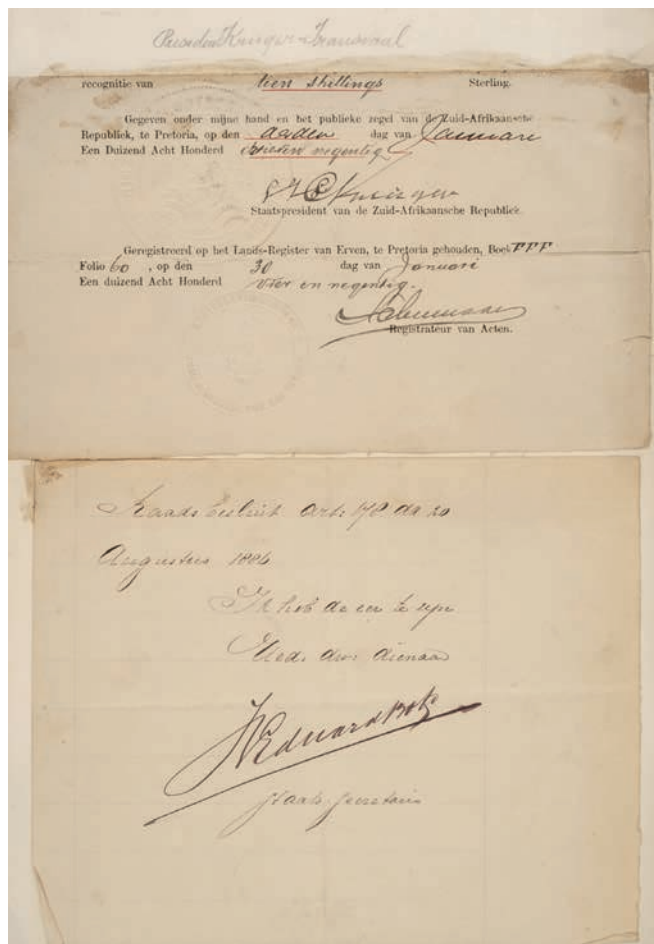 President Kruger - Transvaal
recognitie van tien shillings Sterling.
Gegeven onder mijne hand en het publieke zegel van de Zuid-Afrikaansche
Republiek, te Pretoria, op den dag van Januari
Een Duizend Acht Honderd en negentig
Kruger
Staatspresident van de Zuid-Afrikaansche Republiek.
Geregistreerd op het Lands-Register van Erven, te Pretoria gehouden, Boek FFF
Folio 60 , op den 30 dag van Januari
Een duizend Acht Honderd vier en negentig.
Registrateur van Acten.
Raads besluit Art: 178 dd 20
Augustus 1886
Ik heb de eer te zijn
UEd. dw: dienaar
W Eduard Bok
Staats Secretaris